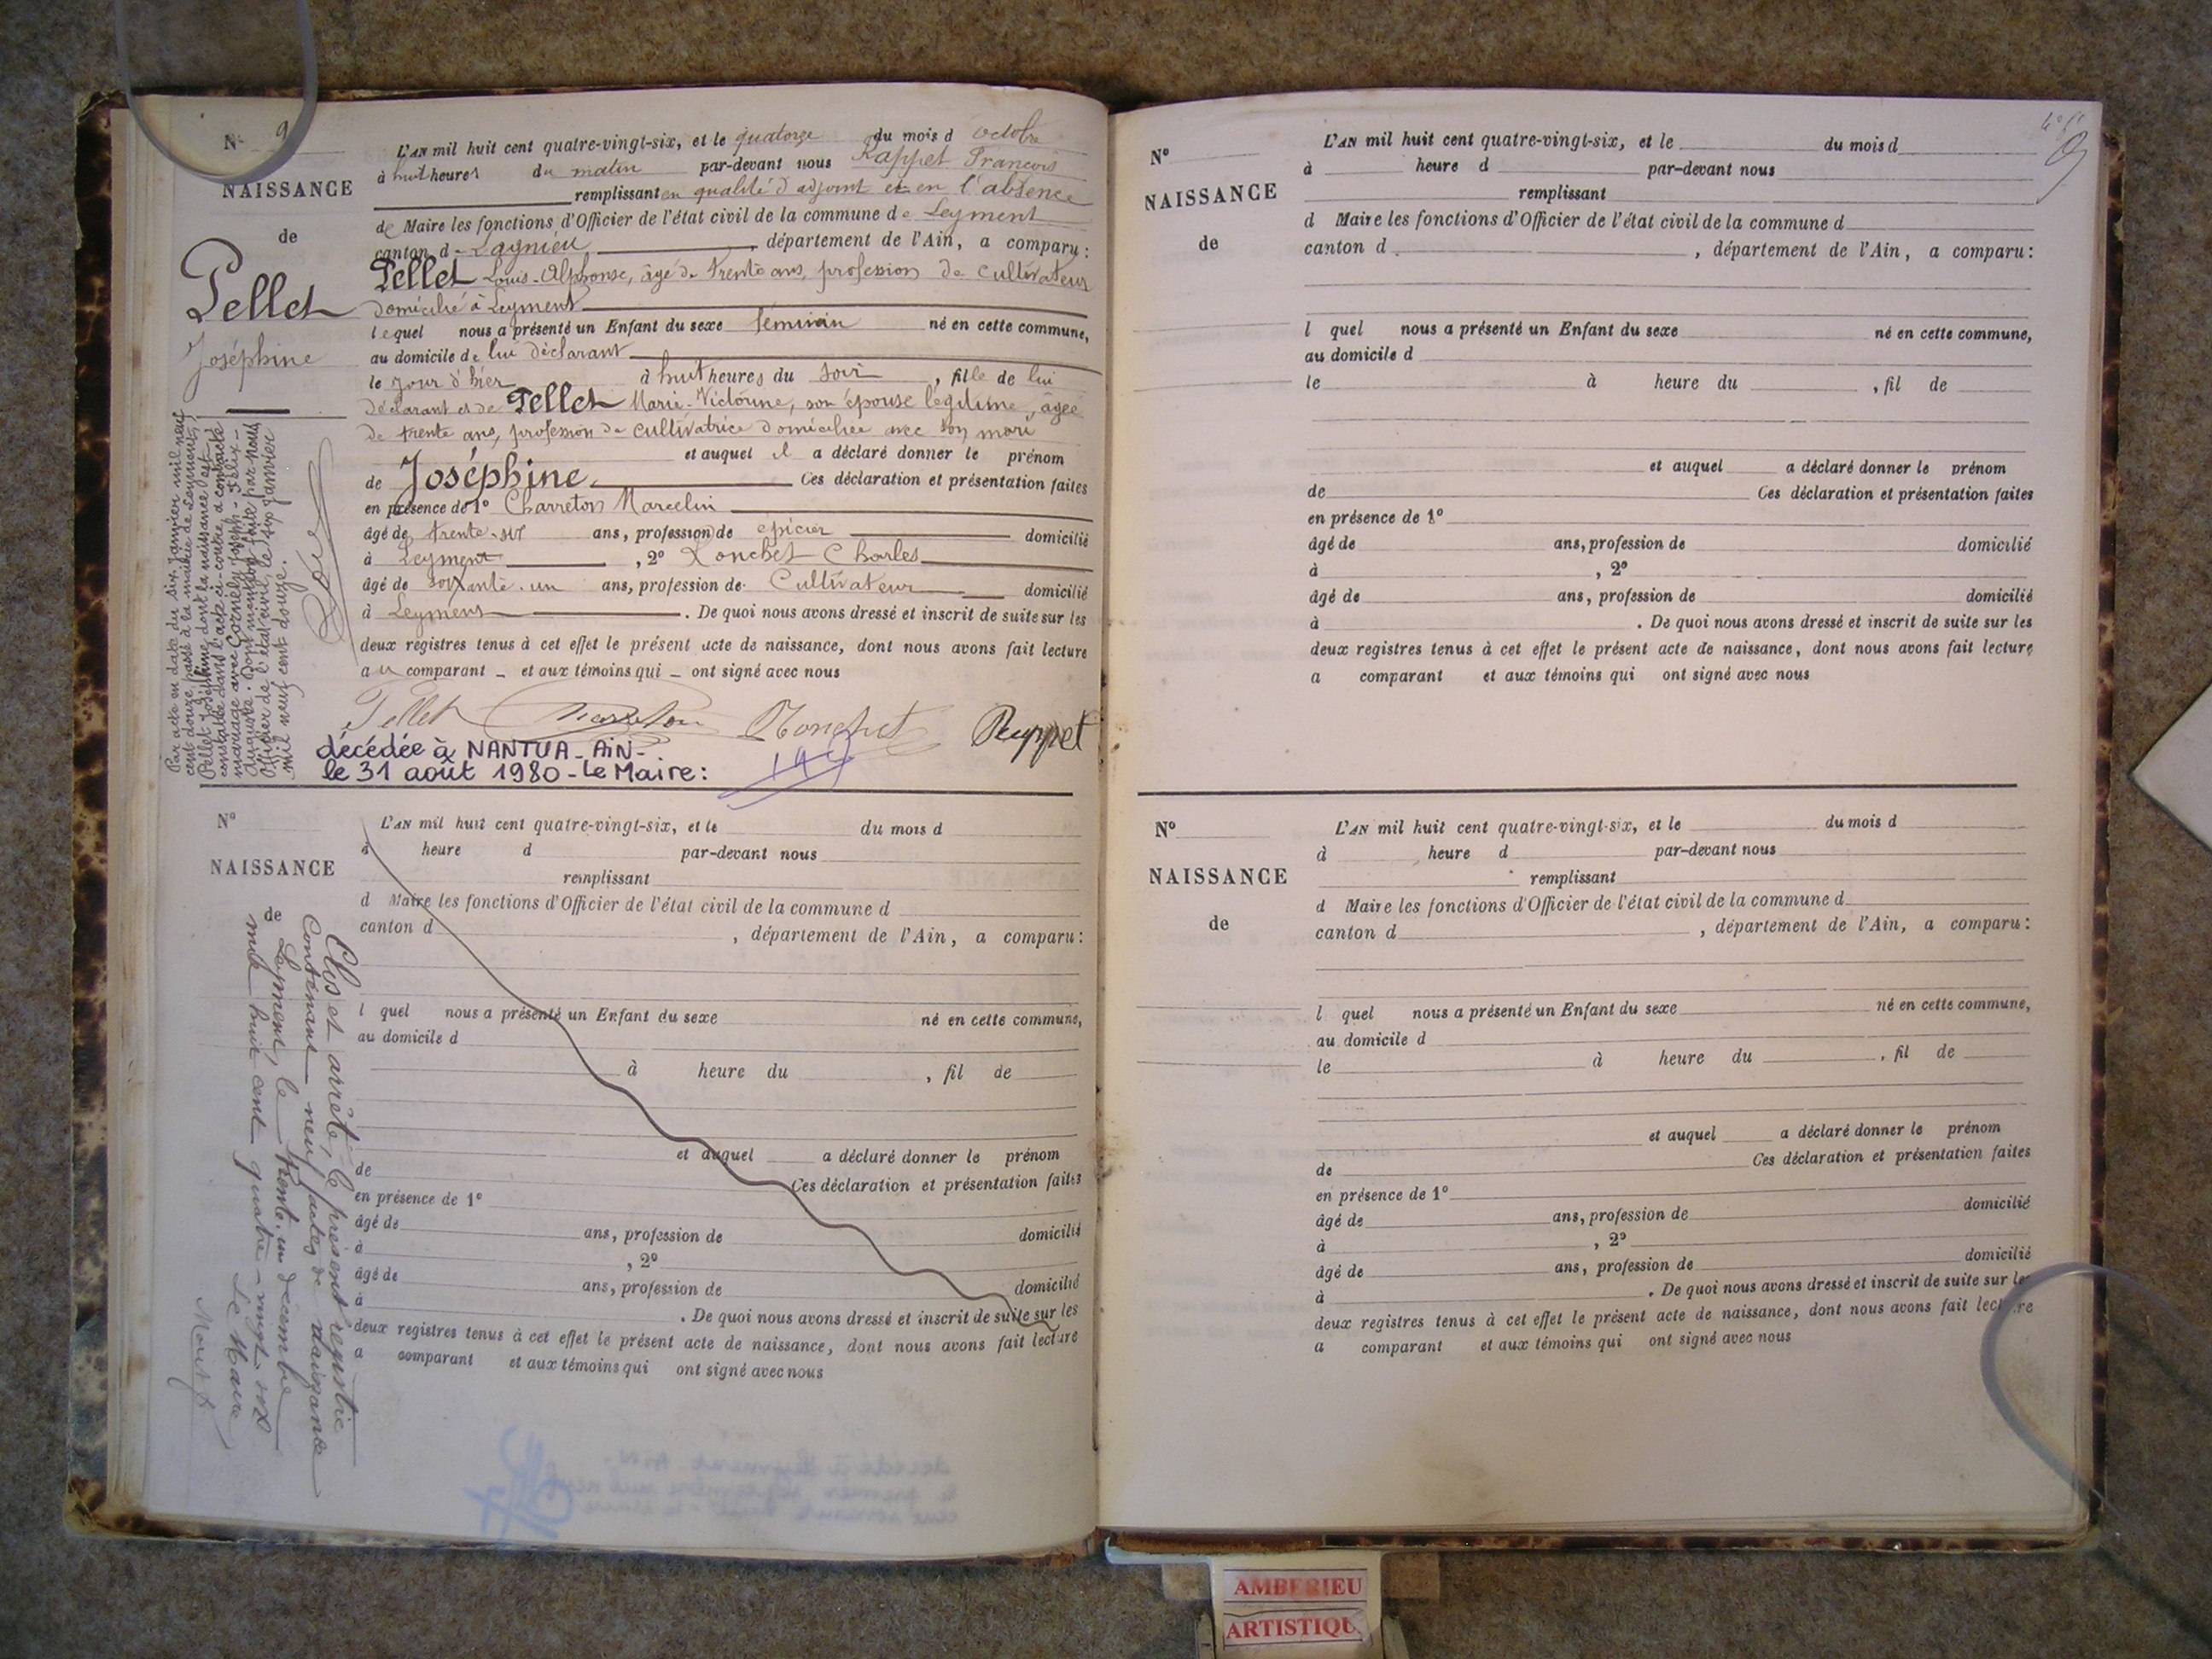 N° 9
NAISSANCE
de
Pellet
Joséphine
L'AN mil huit cent quatre-vingt-six, et le quatorze du mois d octobre
à huit heures du matin par-devant nous Rappet François
remplissant en qualité d'adjoint et en l'absence
de Maire les fonctions d'Officier de l'état civil de la commune de Leyment
canton d Lagnieu, département de l'Ain, a comparu :
Pellet Louis-Alphonse, âgé de trente ans, profession de cultivateur
domicilié à Leyment
lequel nous a présenté un Enfant du sexe féminin né en cette commune,
au domicile de lui déclarant
le jour d'hier à huit heures du soir, fille de lui
déclarant et de Pellet Marie-Victorine, son épouse légitime, âgée
de trente ans, profession de cultivatrice domiciliée avec son mari
et auquel il a déclaré donner le prénom
de Joséphine. Ces déclaration et présentation faites
en présence de 1° Charreton Marcelin
âgé de trente-six ans, profession de épicier domicilié
à Leyment, 2° Ronchet Charles
âgé de soixante-un ans, profession de Cultivateur domicilié
à Leyment. De quoi nous avons dressé et inscrit de suite sur les
deux registres tenus à cet effet le présent acte de naissance, dont nous avons fait lecture
au comparant et aux témoins qui ont signé avec nous
Pellet Charreton Ronchet Rappet
décédée à NANTUA-AIN-
le 31 août 1980-Le Maire:
Par acte en date du six janvier mil neuf
cent douze, passé à la mairie de Leyment,
Pellet Joséphine dont la naissance est
constatée dans l'acte ci-contre, a contracté
mariage avec Cornely Joseph-Félix-
Auguste. Dont mention faite par nous,
Officier de l'état-civil, le six janvier
mil neuf cent douze.
N°
NAISSANCE
de
L'AN mil huit cent quatre-vingt-six, et le du mois d
à heure d par-devant nous
remplissant
d Maire les fonctions d'Officier de l'état civil de la commune d
canton d , département de l'Ain, a comparu :
l quel nous a présenté un Enfant du sexe né en cette commune,
au domicile d
à heure du , fil de
et auquel a déclaré donner le prénom
de Ces déclaration et présentation faites
en présence de 1°
âgé de ans, profession de domicilié
à , 2°
âgé de ans, profession de domicilié
à . De quoi nous avons dressé et inscrit de suite sur les
deux registres tenus à cet effet le présent acte de naissance, dont nous avons fait lecture
a comparant et aux témoins qui ont signé avec nous
Clos et arrêté, le présent registre
contenant neuf actes de naissance
Leyment, le trente-un décembre
mil huit cent quatre-vingt-six
Le Maire
N°
NAISSANCE
de
L'AN mil huit cent quatre-vingt-six, et le du mois d
à heure d par-devant nous
remplissant
d Maire les fonctions d'Officier de l'état civil de la commune d
canton d , département de l'Ain, a comparu :
l quel nous a présenté un Enfant du sexe né en cette commune,
au domicile d
le à heure du , fil de
et auquel a déclaré donner le prénom
de Ces déclaration et présentation faites
en présence de 1°
âgé de ans, profession de domicilié
à , 2°
âgé de ans, profession de domicilié
à . De quoi nous avons dressé et inscrit de suite sur les
deux registres tenus à cet effet le présent acte de naissance, dont nous avons fait lecture
a comparant et aux témoins qui ont signé avec nous
N°
NAISSANCE
de
L'AN mil huit cent quatre-vingt-six, et le du mois d
à heure d par-devant nous
remplissant
d Maire les fonctions d'Officier de l'état civil de la commune d
canton d , département de l'Ain, a comparu :
l quel nous a présenté un Enfant du sexe né en cette commune,
au domicile d
le à heure du , fil de
et auquel a déclaré donner le prénom
de Ces déclaration et présentation faites
en présence de 1°
âgé de ans, profession de domicilié
à , 2°
âgé de ans, profession de domicilié
à . De quoi nous avons dressé et inscrit de suite sur les
deux registres tenus à cet effet le présent acte de naissance, dont nous avons fait lecture
a comparant et aux témoins qui ont signé avec nous
AMBERIEU
ARTISTIQU